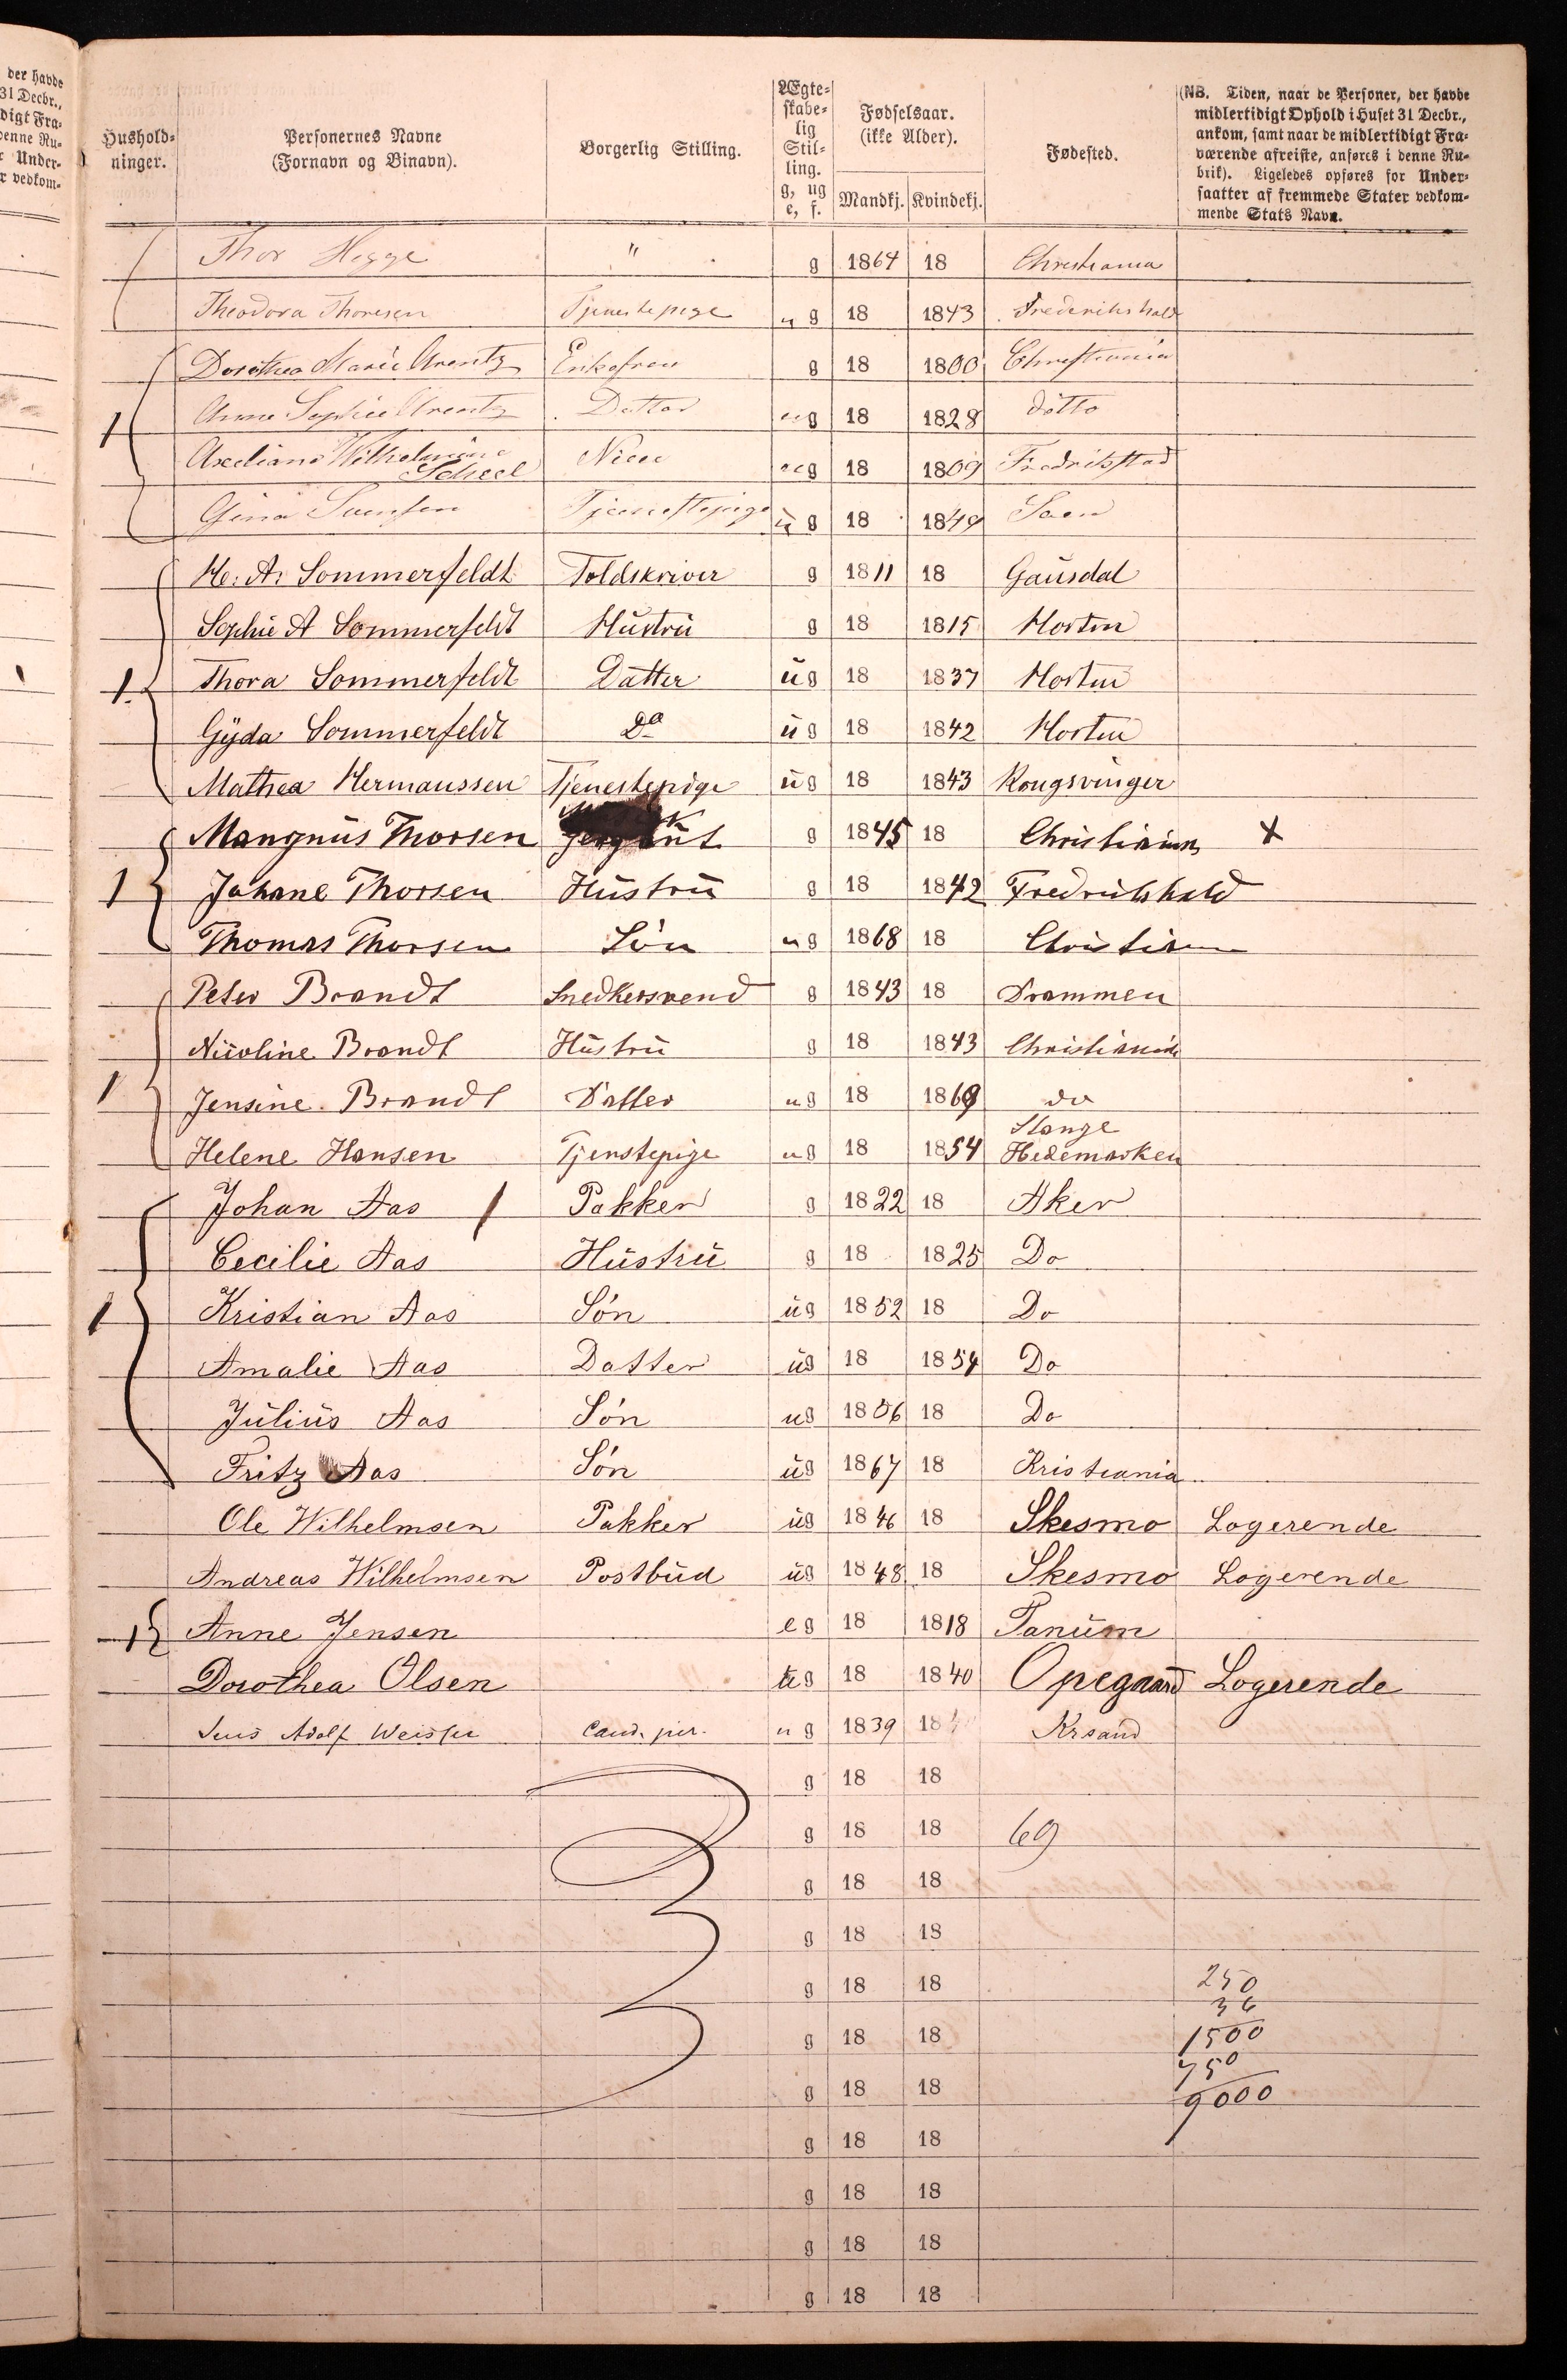 der havde
31 Decbr.,
digt Fra-
denne Ru-
r Under-
r vedkom-
Hushold-
ninger.
Personernes Navne
(Fornavn og Binavn).
Borgerlig Stilling.
Ægte-
skabe-
lig
Stil-
ling.
g, ug
e, f.
Fødselsaar.
(ikke Alder).
Mandkj. Kvindekj.
Fødested.
(NB. Tiden, naar de Personer, der havde
midlertidigt Ophold i Huset 31 Decbr.,
ankom, samt naar de midlertidigt Fra-
værende afreiste, anføres i denne Ru-
brik). Ligeledes opføres for Under-
saatter af fremmede Stater vedkom-
mende Stats Navn.
Thor Hegge " g 1864 18 Christiania
Theodora Thoresen Tjenestepige ug 18 1843 Frederikshald
Dorothea Marie Arentz Enkefrue g 18 1800 Christiania
Anne Sophie Arentz Datter ug 18 1828 ditto
1 Axeliane Wilhelmine Scheel Niece ug 18 1809 Fredrikstad
Gina Svensen Tjenestepige ug 18 1849 Soon
H: A: Sommerfeldt Toldskriver g 1811 18 Gausdal
Sophie A Sommerfeldt Hustru g 18 1815 Horten
1. Thora Sommerfeldt Datter ug 18 1837 Horten
Gyda Sommerfeldt Do ug 18 1842 Horten
Mathea Hermanssen Tjenestepige ug 18 1843 Kongsvinger
Mangnus Thorsen g 1845 18 Christiania X
1 Johane Thorsen Hustru g 18 1842 Fredrikshald
Thomas Thorsen Søn ug 1868 18 Christiania
Peter Brandt Snedkersvend g 1843 18 Drammen
Nicoline Brandt Hustru g 18 1843 Christiania
1 Jensine Brandt Datter ug 18 1869 do
Stange
Helene Hansen Tjenstepige ug 18 1854 Hedemarken
Johan Aas 1 Pakker g 1822 18 Aker
Cecilie Aas Hustru g 18 1825 Do
1 Kristian Aas Søn ug 1852 18 Do
Amalie Aas Datter ug 18 1854 Do
Julius Aas Søn ug 1856 18 Do
Fritz Aas Søn ug 1867 18 Kristiania
Ole Wilhelmsen Pakker ug 1846 18 Skesmo Logerende
Andreas Wilhelmsen Postbud ug 1848 18 Skesmo Logerende
1 Anne Jensen eg 18 1818 Tanum
Dorothea Olsen ug 18 1840 Opegaard Logerende
Jens Adolf Weisser Cand. jur. ug 1839 18 Krsand
g 18 18
g 18 18 69
g 18 18
g 18 18
g 18 18 250
36
g 18 18 1500
750
g 18 18 9000
g 18 18
g 18 18
g 18 18
g 18 18